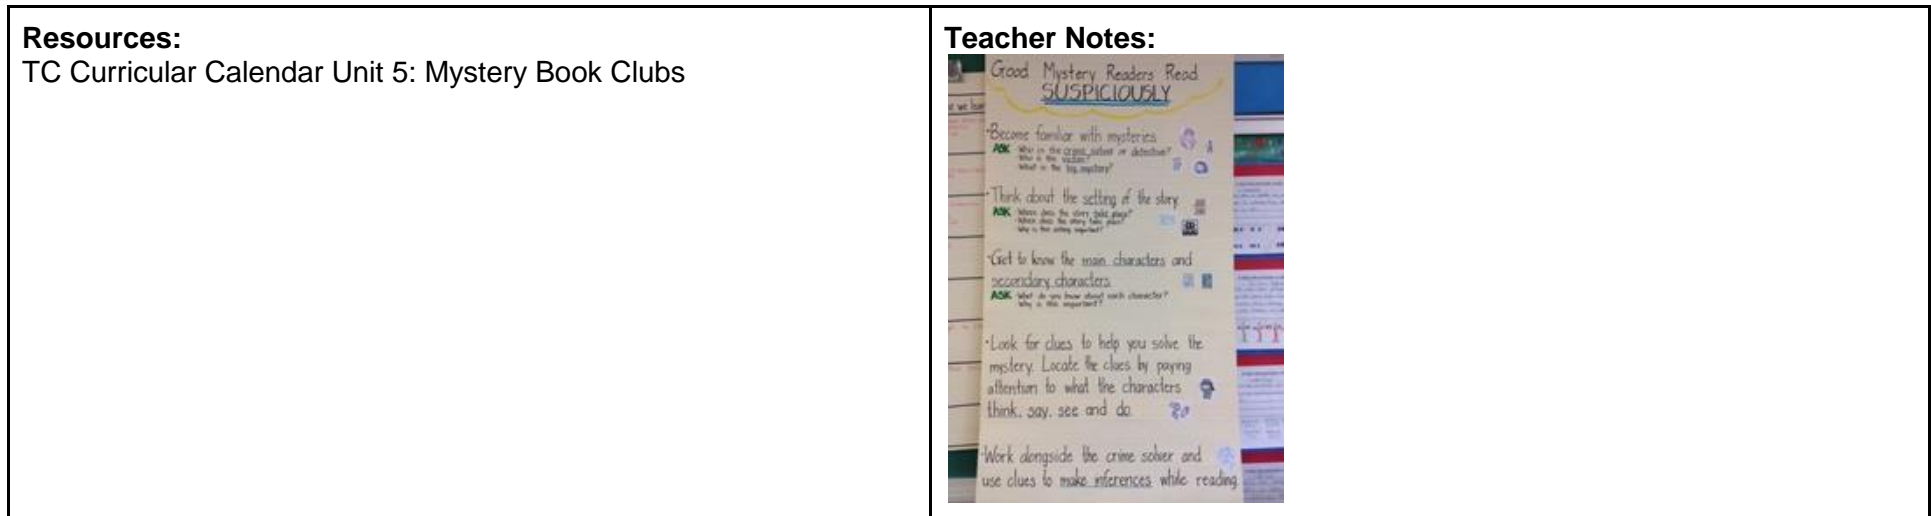 Resources:
TC Curricular Calendar Unit 5: Mystery Book Clubs
Teacher Notes:
Good Mystery Readers Read
SUSPICIOUSLY
Become familiar with mysteries
ASK Who is the crime solver or detective?
Who is the victim?
What is the big mystery?
Think about the setting of the story
ASK Where does the story take place?
When does the story take place?
Why is the setting important?
Get to know the main characters and
secondary characters
ASK What do you know about each character?
Why is this important?
Look for clues to help you solve the
mystery. Locate the clues by paying
attention to what the characters
think, say, see and do
Work alongside the crime solver and
use clues to make inferences while reading.